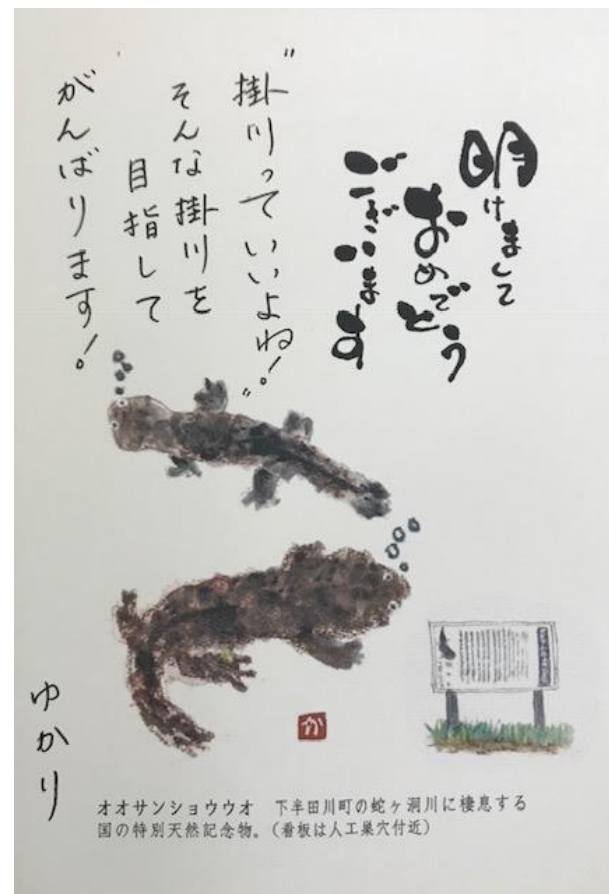 明けまして
おめでとう
ございます
"掛川っていいよね!"
そんな掛川を
目指して
がんばります!
ゆかり
か
オオサンショウウオ 下半田川町の蛇ヶ洞川に棲息する
国の特別天然記念物。(看板は人工巣穴付近)